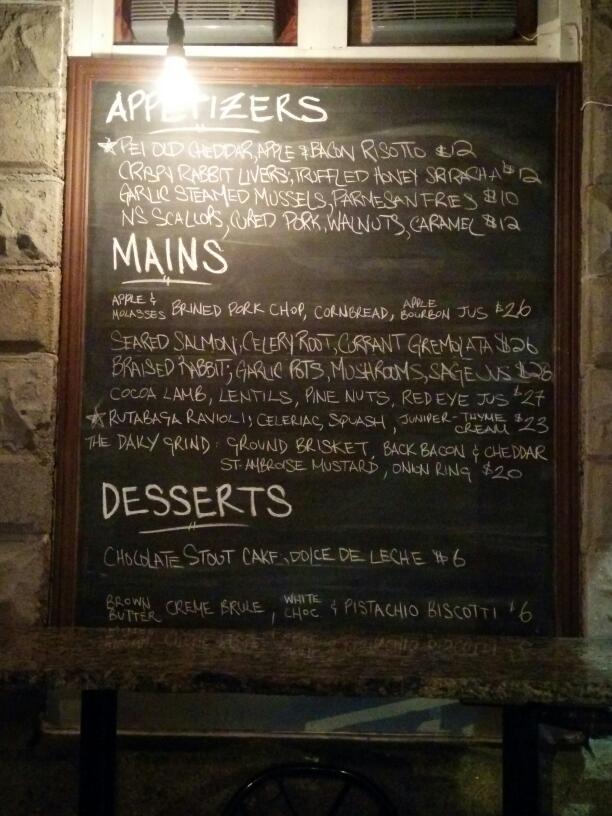 APPETIZERS
★ PEI OLD CHEDDAR, APPLE & BACON RISOTTO $12
CRISPY RABBIT LIVERS, TRUFFLED HONEY SRIRACHA $12
GARLIC STEAMED MUSSELS, PARMESAN FRIES $10
NS SCALLOPS, CURED PORK, WALNUTS, CARAMEL $12
MAINS
APPLE & MOLASSES BRINED PORK CHOP, CORNBREAD, APPLE BOURBON JUS $26
SEARED SALMON, CELERY ROOT, CURRANT GREMOLATA $26
BRAISED RABBIT, GARLIC POTS, MUSHROOMS, SAGE JUS $28
COCOA LAMB, LENTILS, PINE NUTS, RED EYE JUS $27
★ RUTABAGA RAVIOLI; CELERIAC, SQUASH, JUNIPER-THYME CREAM $23
THE DAILY GRIND: GROUND BRISKET, BACK BACON & CHEDDAR
ST. AMBROISE MUSTARD, ONION RING $20
DESSERTS
CHOCOLATE STOUT CAKE, DOLCE DE LECHE $6
BROWN BUTTER CREME BRULE, WHITE CHOC. & PISTACHIO BISCOTTI $6